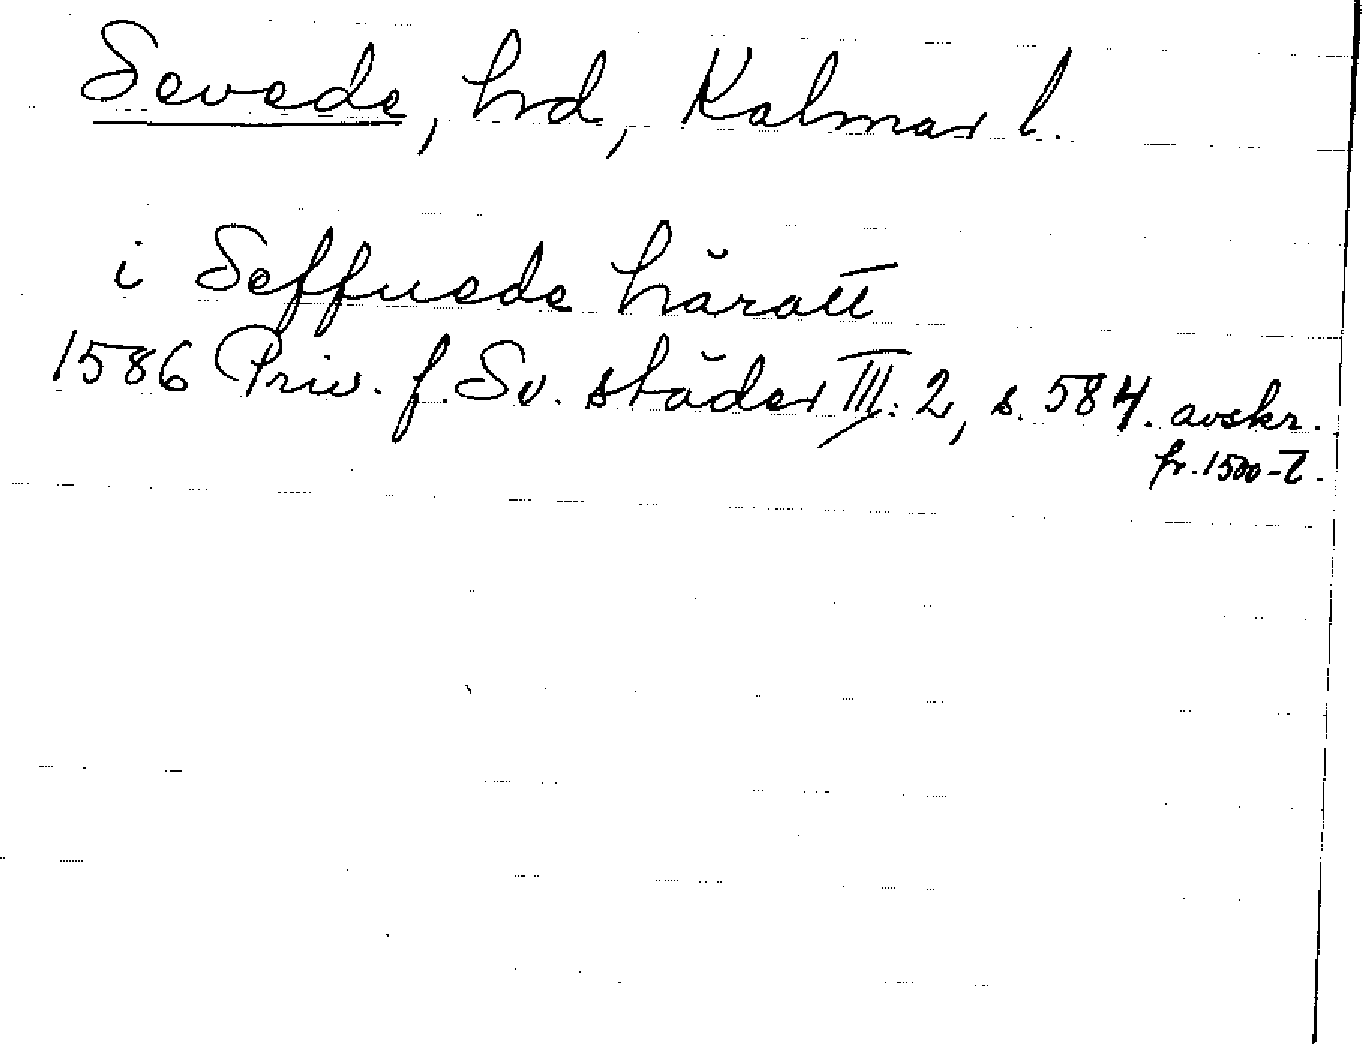 Sevede, hrd, Kalmar l.
i Seffuede häratt
1586 Priv. f. Sv. städer III: 2, s. 584. avskr.
fr. 1500-t.